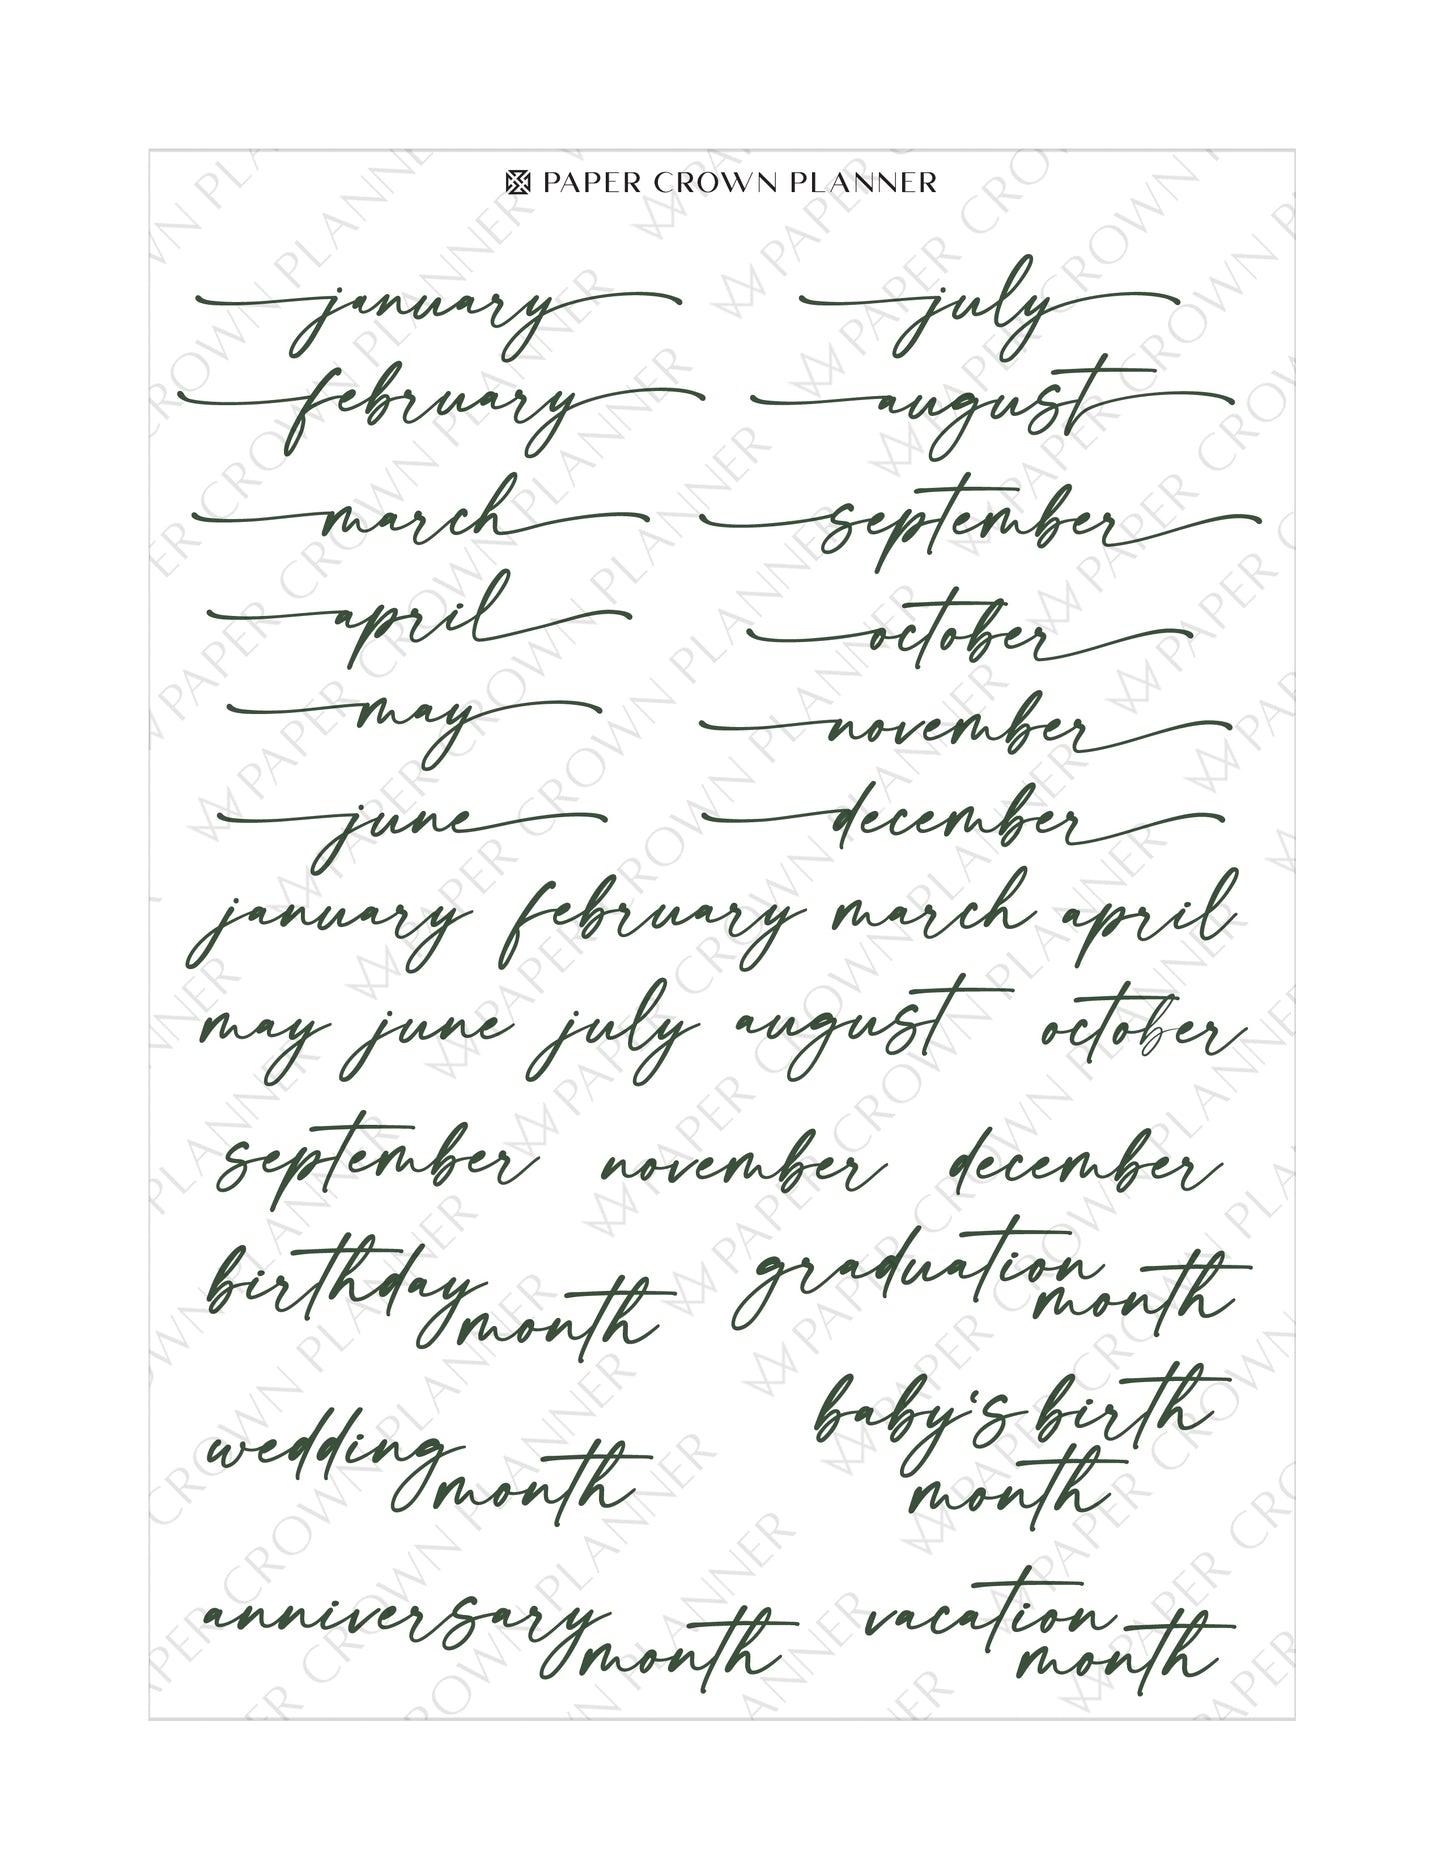 PAPER CROWN PLANNER
january july
february august
march september
april october
may november
june december
january february march april
may june july august october
september november december
birthday month
graduation month
wedding month
baby's birth month
anniversary month
vacation month